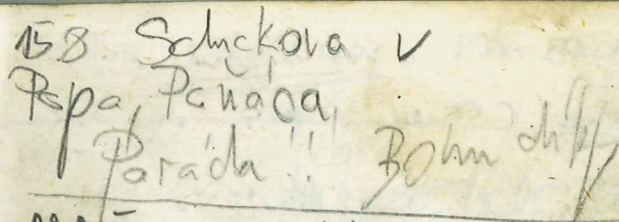 158 Schickova v
Pepa, Paňáca,
Paráda!! Bohu díky